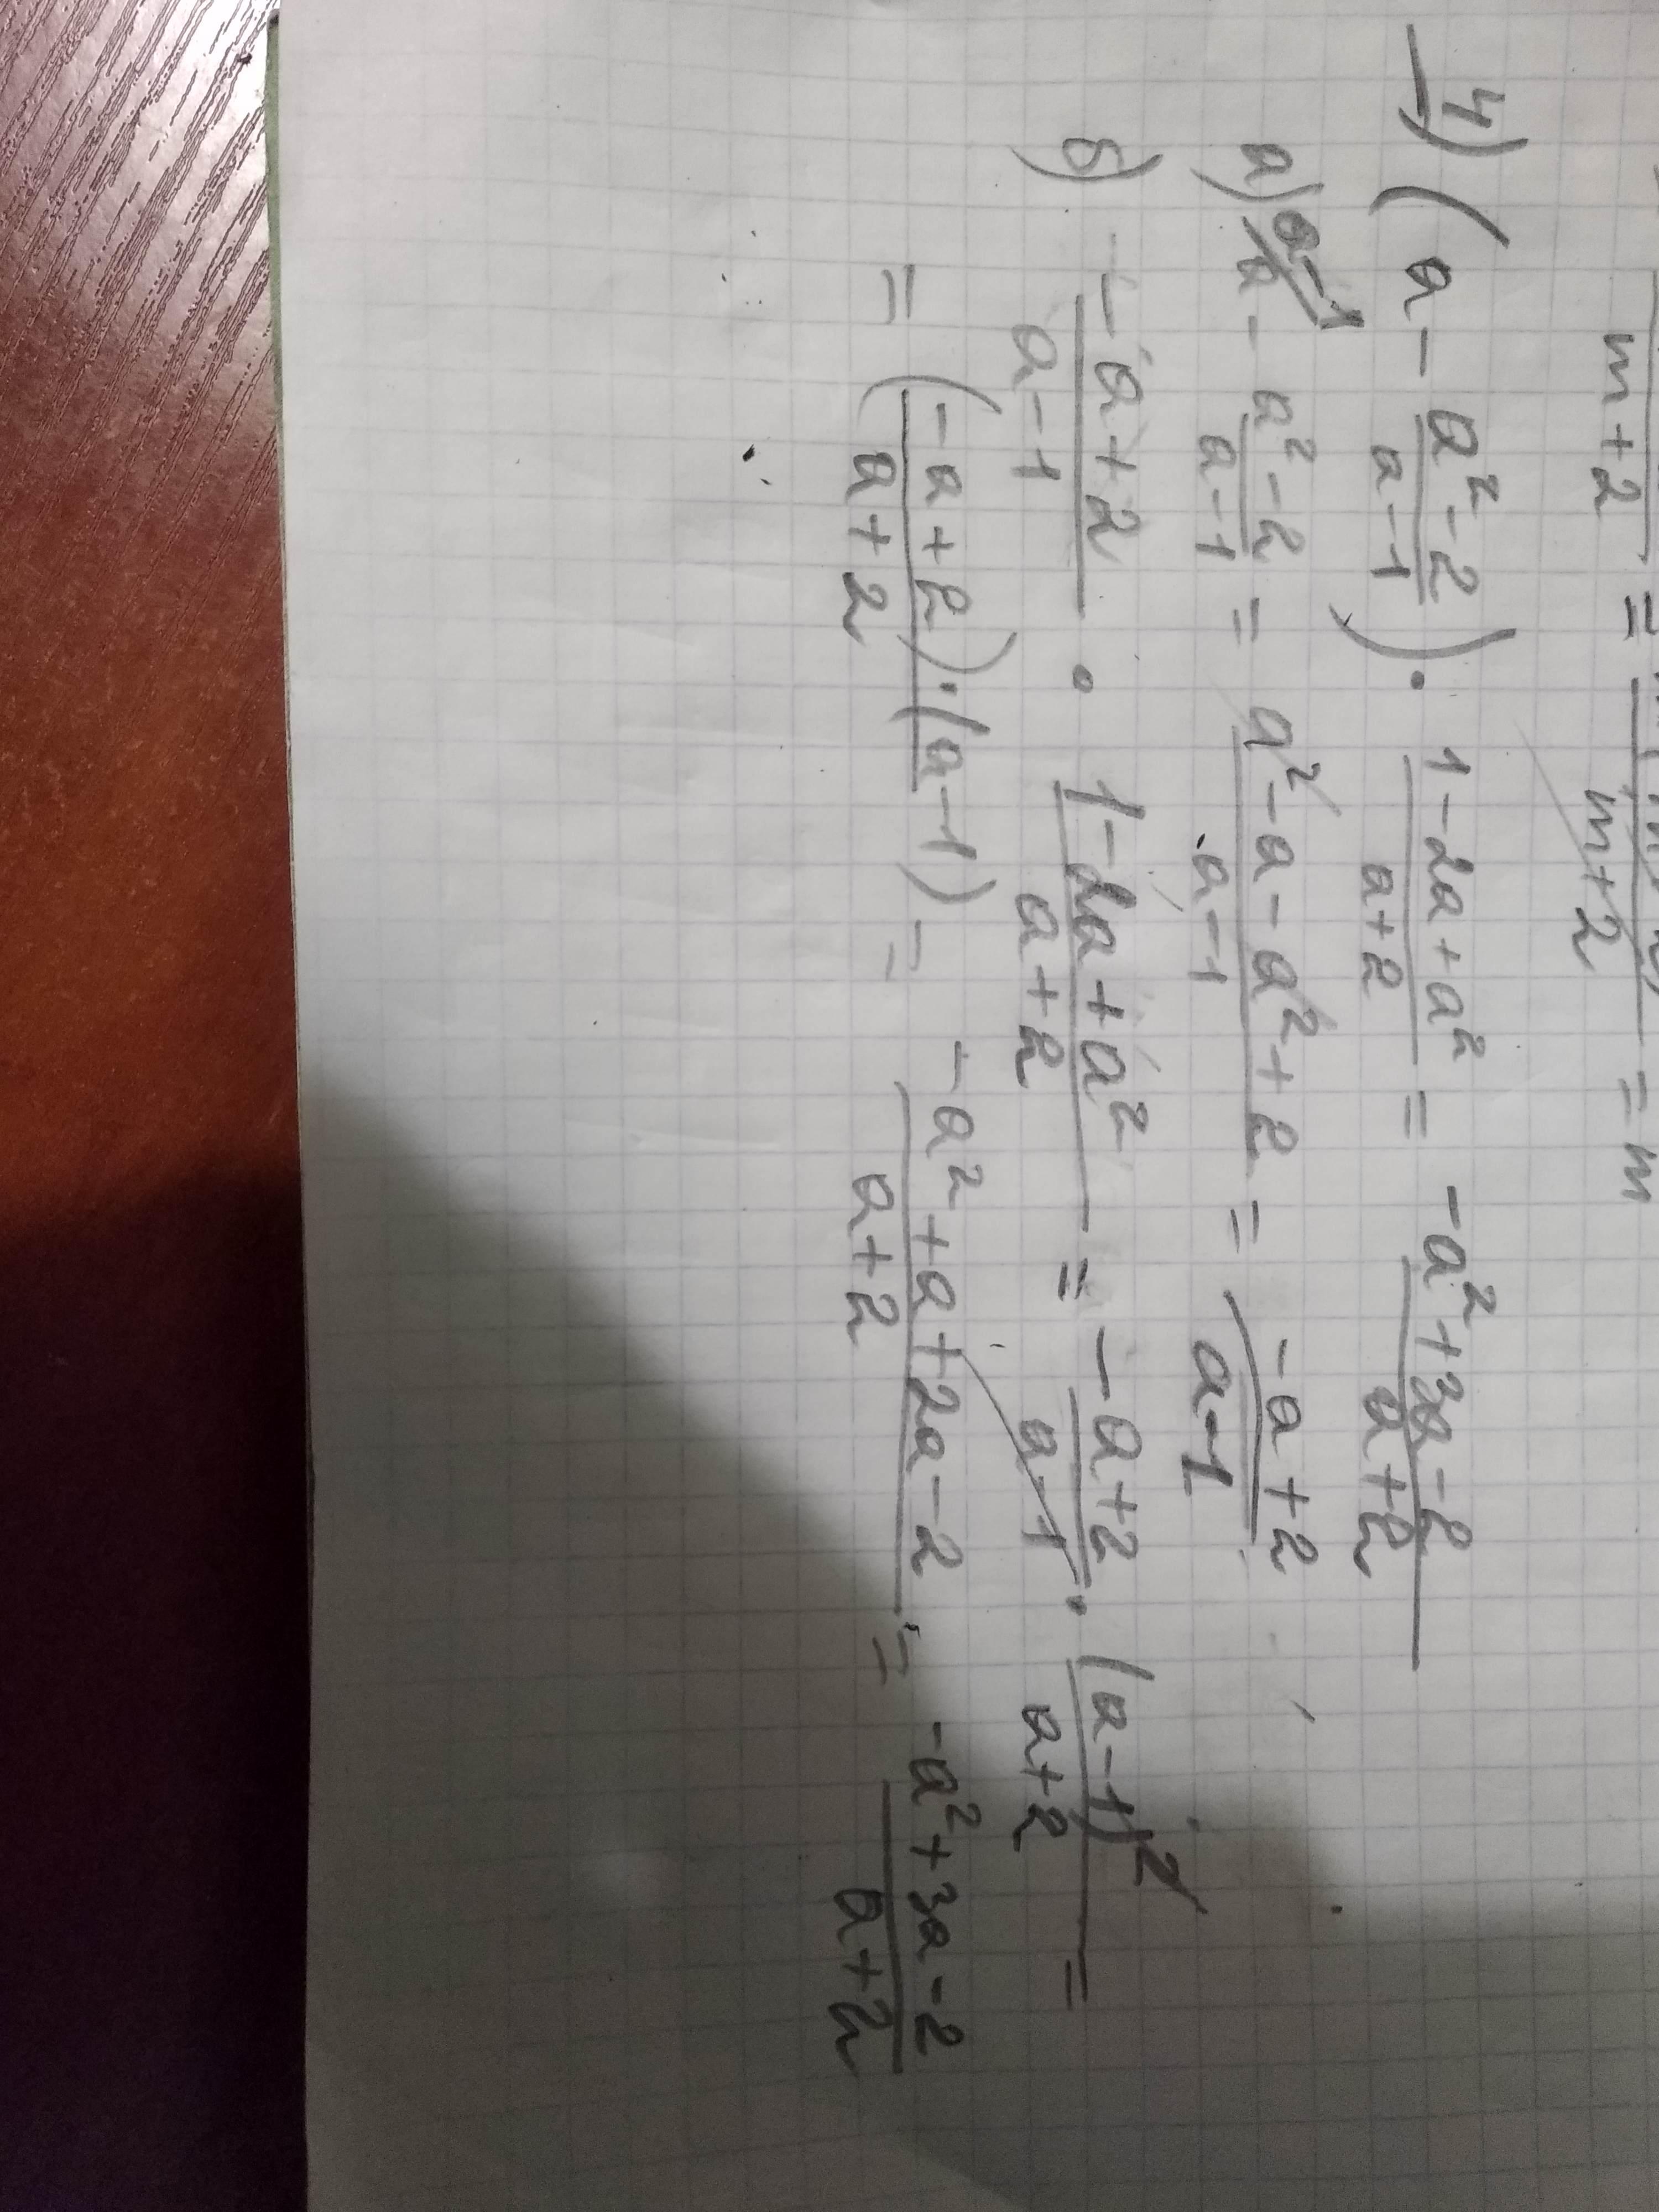 m+2 = m+2 = m
4) (a - (a²-2)/(a-1)) · (1-2a+a²)/(a+2) = (-a²+3a-2)/(a+2)
а) a - (a²-2)/(a-1) = (a²-a-a²+2)/(a-1) = (-a+2)/(a-1)
б) (-a+2)/(a-1) · (1-2a+a²)/(a+2) = (-a+2)/(a-1) · (a-1)²/(a+2) =
= ((-a+2)·(a-1))/(a+2) = (-a²+a+2a-2)/(a+2) = (-a²+3a-2)/(a+2)